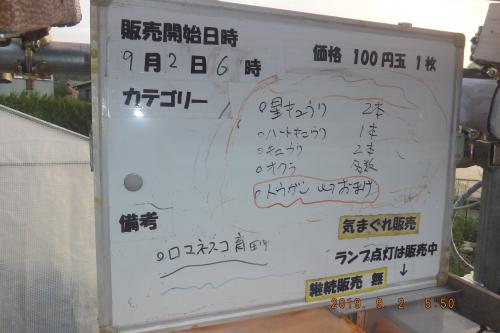 販売開始日時
9月2日6時
価格 100円玉 1枚
カテゴリー
○星キュウリ 2本
○ハートキュウリ 1本
○キュウリ 2本
○オクラ 多数
○トウガン おまけ
備考
○ロマネスコ育
気まぐれ販売
ランプ点灯は販売中
↓
継続販売 無
2019 9 2 5:50